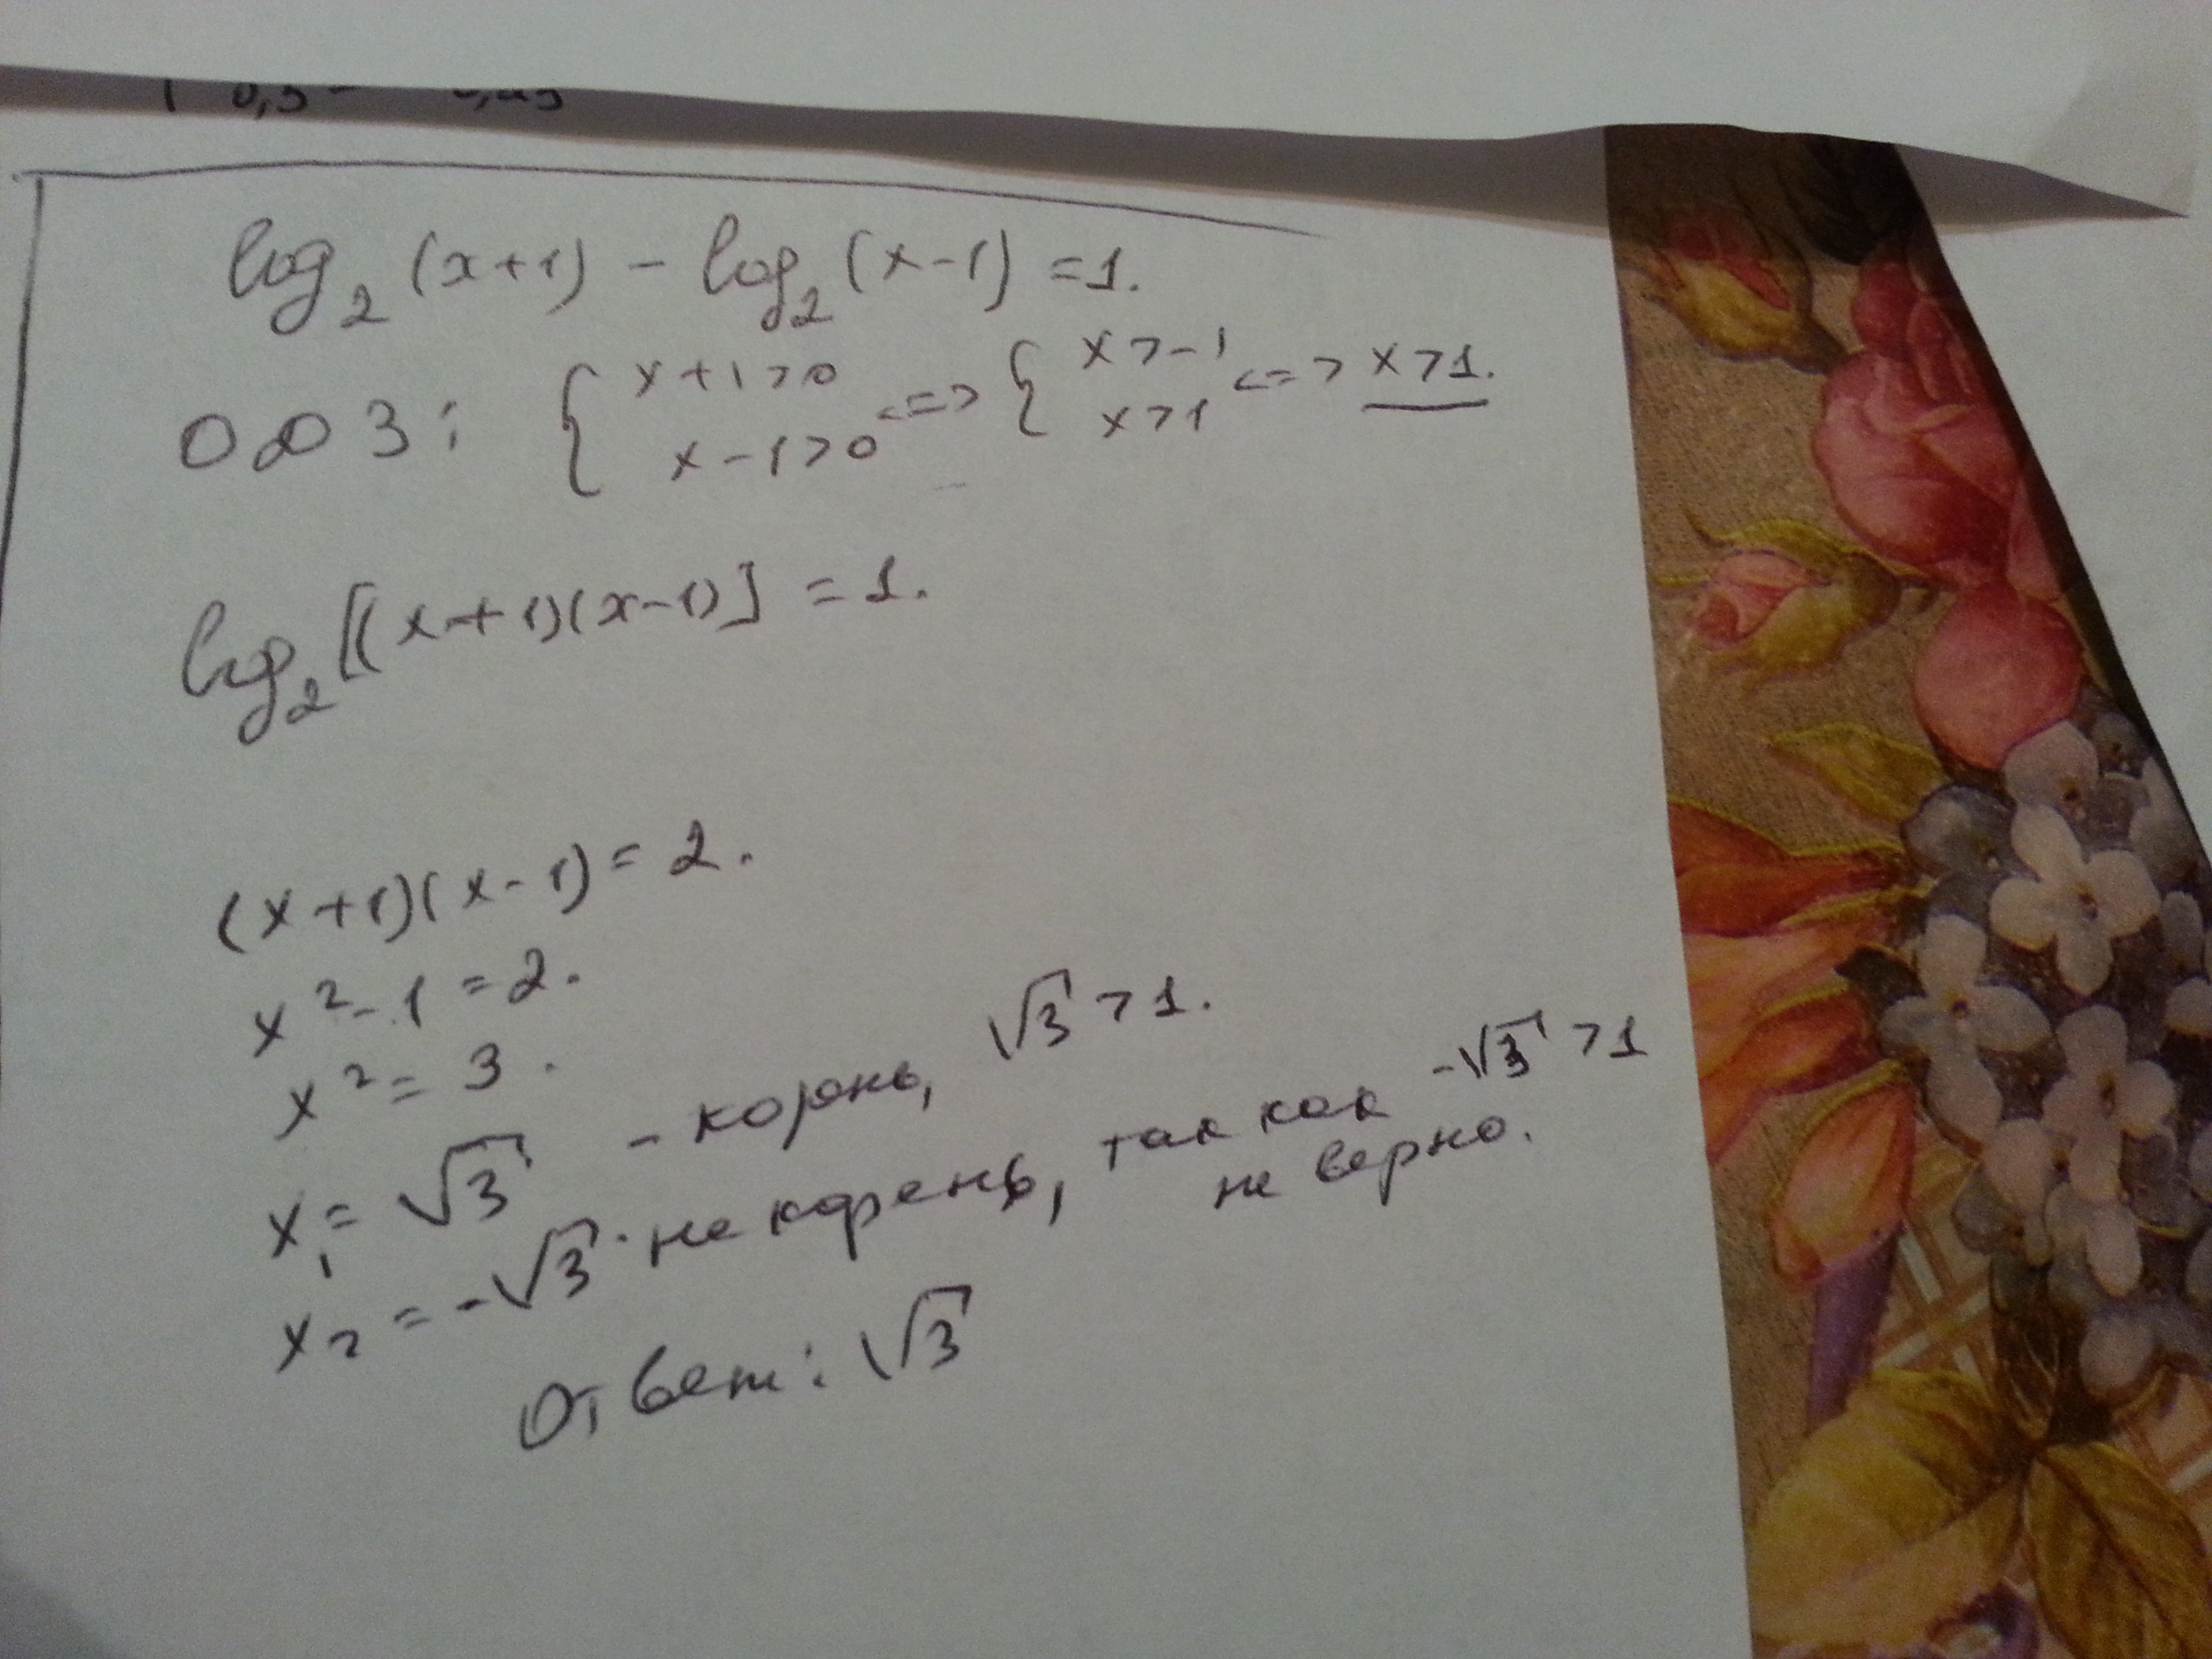 log₂(x+1) - log₂(x-1) = 1.
ОДЗ: { x+1>0 x-1>0 <=> { x>-1 x>1 <=> x>1.
log₂[(x+1)(x-1)] = 1.
(x+1)(x-1) = 2.
x² - 1 = 2.
x² = 3.
x₁ = √3 - корень, √3 > 1.
x₂ = -√3 - не корень, так как -√3 > 1
не верно.
Ответ: √3